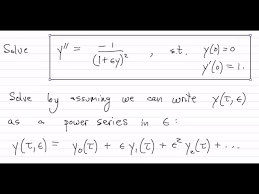 Solve y'' = -1/(1+εy)², s.t. y(0)=0
y'(0)=1.
Solve by assuming we can write y(τ,ε)
as a power series in ε:
y(τ,ε) = y₀(τ) + ε y₁(τ) + ε² y₂(τ) + ...